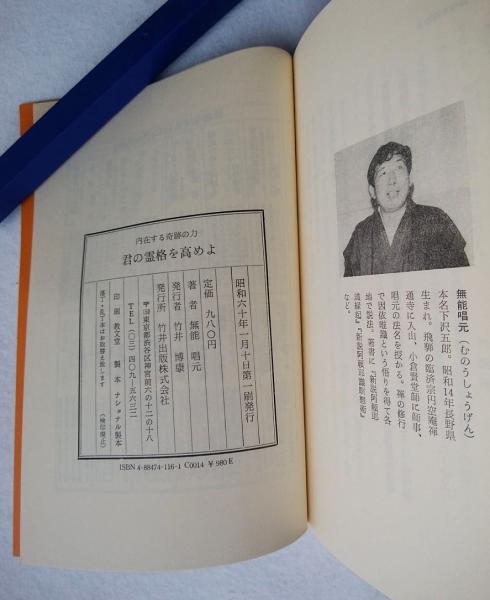 無能唱元(むのうしょうげん)
本名下沢五郎。昭和14年長野県
生まれ。飛騨の臨済宗円空庵禅
通寺に入山、小倉賢堂師に師事、
唱元の法名を授かる。禅の修行
で因依唯識という悟りを得て各
地で説法。著書に『新説阿頼耶
識縁起』『新説阿頼耶識瞑想術』
など。
内在する奇跡の力
君の霊格を高めよ
昭和六十年一月十日第一刷発行
定価 九八〇円
著者 無能唱元
発行者 竹井博康
発行所 竹井出版株式会社
〒東京都渋谷区神宮前六の十二の十八
TEL(〇三)四〇九-五六三二
印刷 教文堂 製本 ナショナル製本
落丁・乱丁本はお取替え致します
(検印廃止)
ISBN 4-88474-116-1 C0014 ¥980E